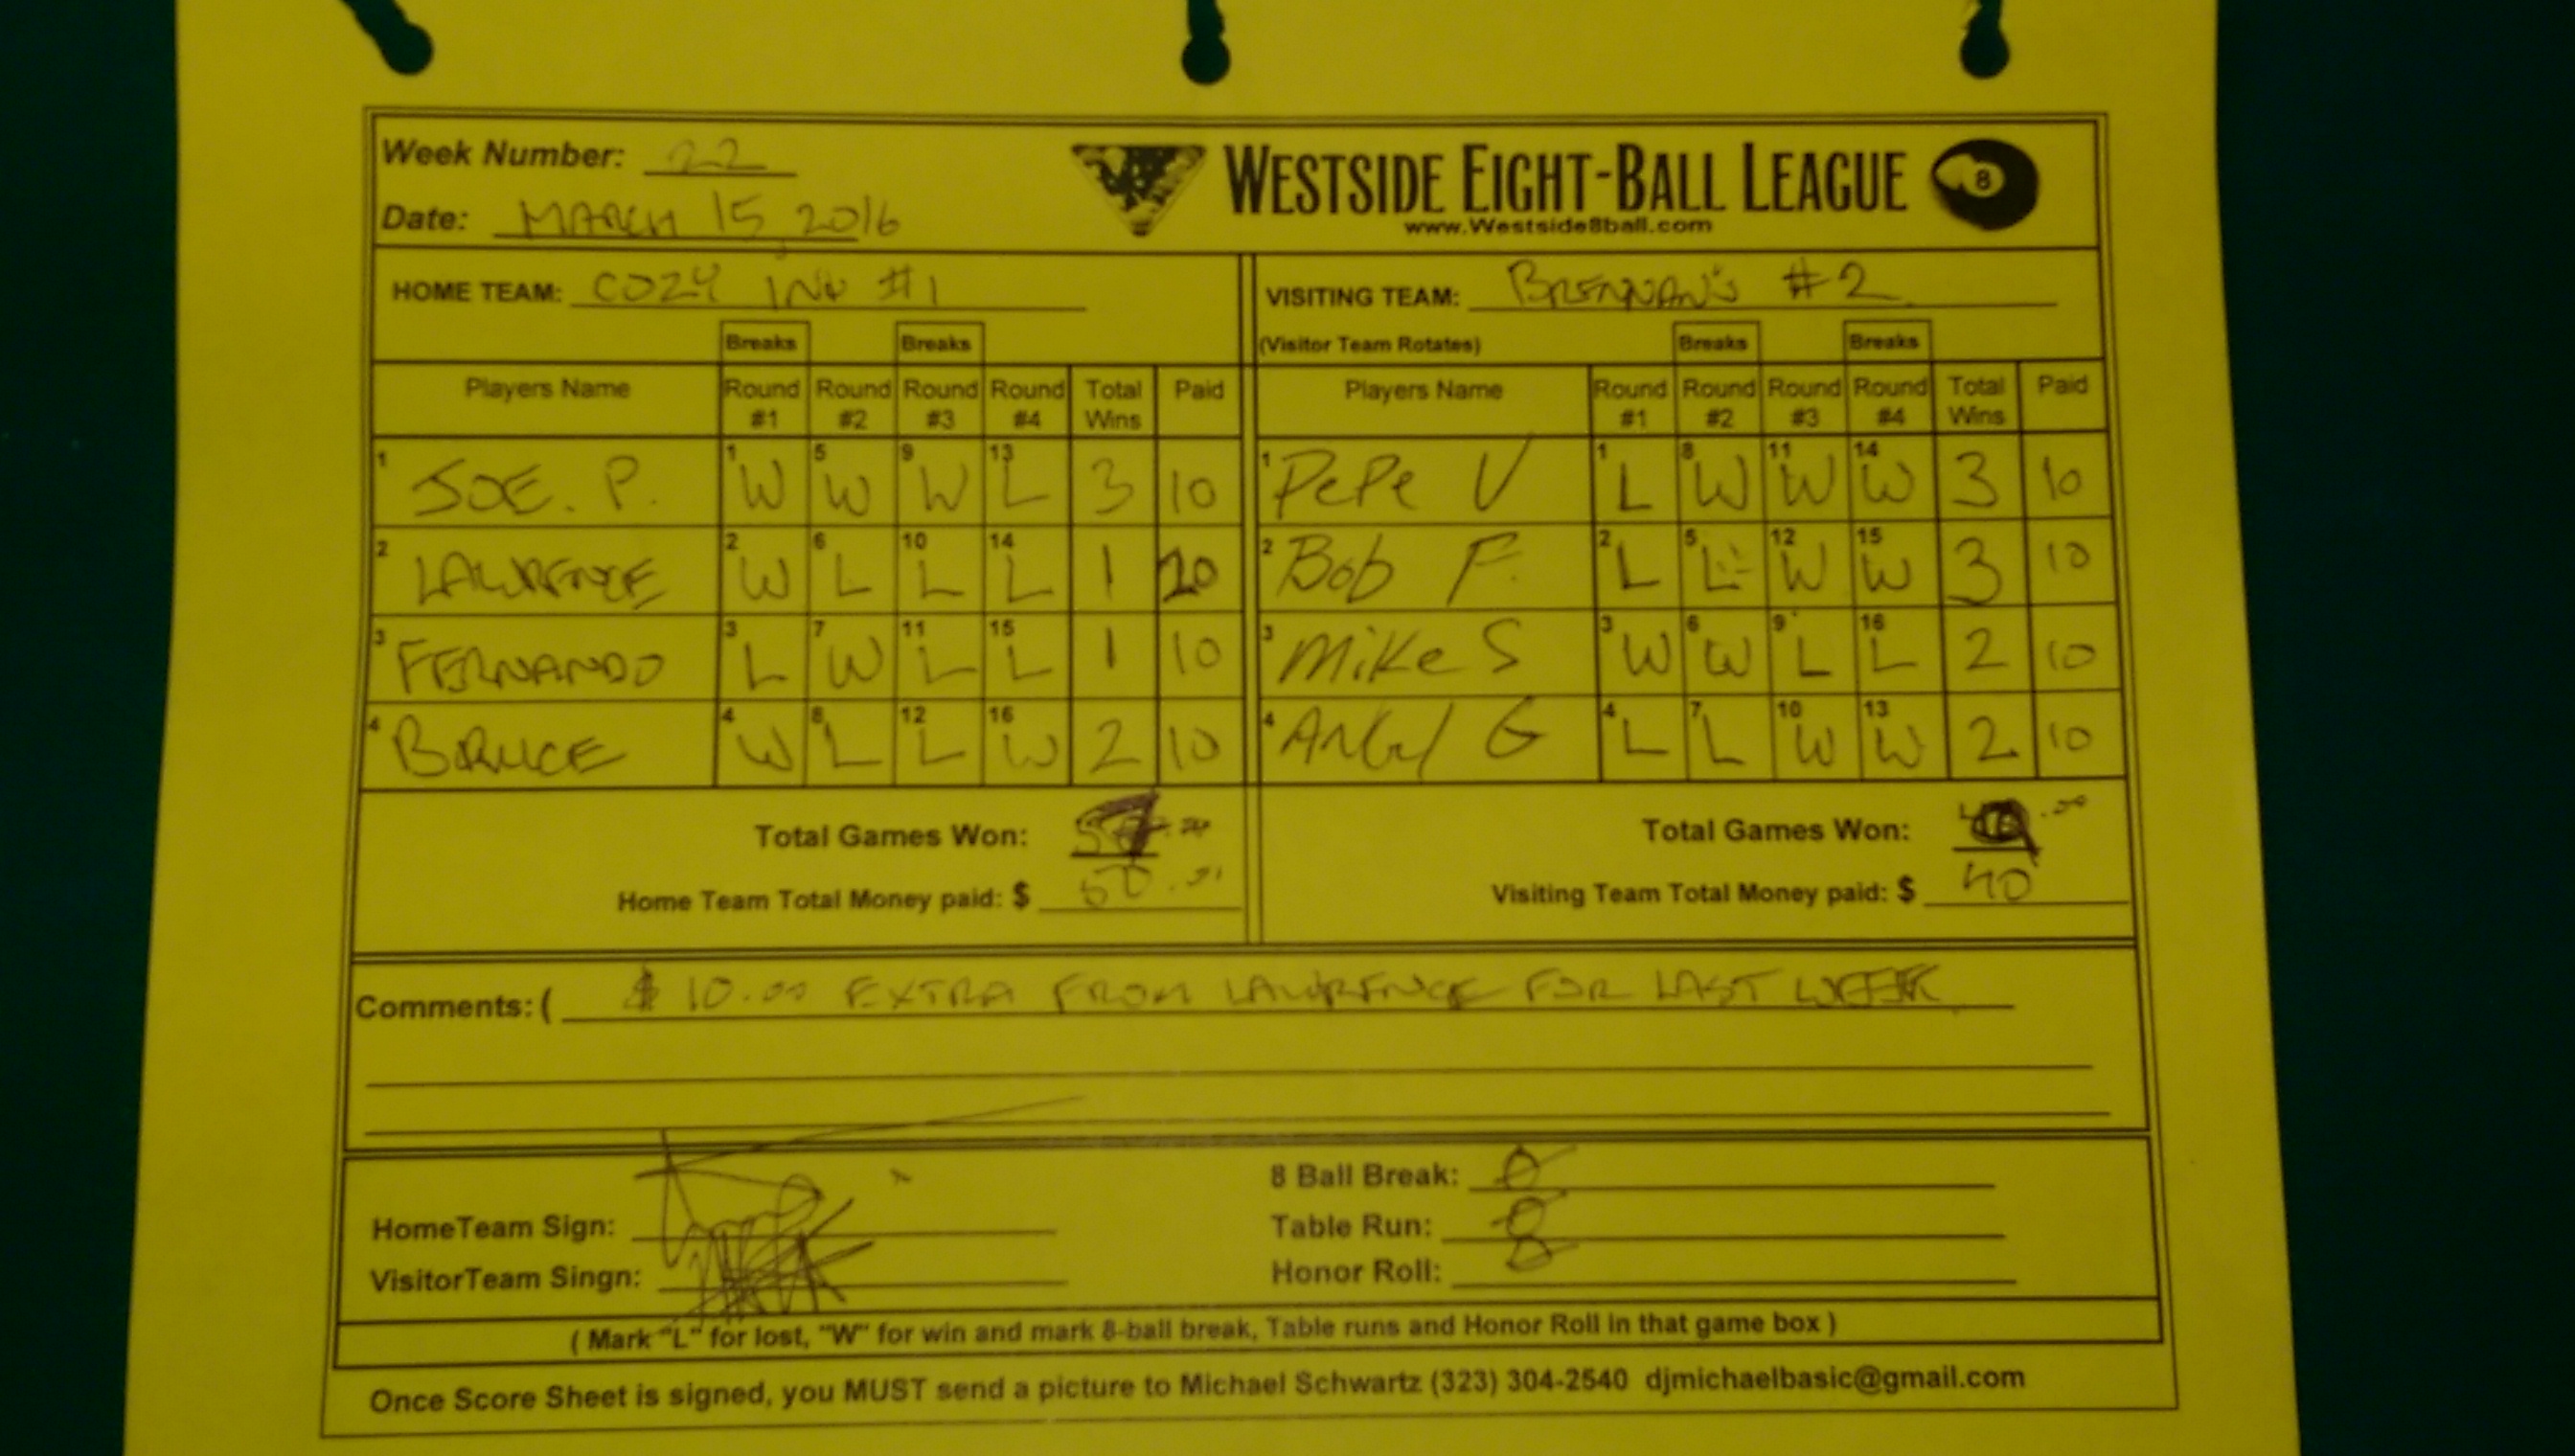 Week Number: 22
WESTSIDE EIGHT-BALL LEAGUE 8
Date: MARCH 15, 2016
www.Westside8ball.com
HOME TEAM: COZY INN #1
VISITING TEAM: BRENNAN'S #2
Breaks Breaks
(Visitor Team Rotates) Breaks Breaks
Players Name Round #1 Round #2 Round #3 Round #4 Total Wins Paid
1 JOE. P. 1 W 5 W 9 W 13 L 3 10
2 LAWRENCE 2 W 6 L 10 L 14 L 1 20
3 FERNANDO 3 L 7 W 11 L 15 L 1 10
4 BRUCE 4 W 8 L 12 L 16 W 2 10
Players Name Round #1 Round #2 Round #3 Round #4 Total Wins Paid
1 PePe V 1 L 8 W 11 W 14 W 3 10
2 Bob F. 2 L 5 L 12 W 15 W 3 10
3 Mike S 3 W 6 W 9 L 16 L 2 10
4 Angel G 4 L 7 L 10 W 13 W 2 10
Total Games Won:
Home Team Total Money paid: $ 50
Total Games Won:
Visiting Team Total Money paid: $ 40
Comments: ( $ 10.00 EXTRA FROM LAWRENCE FOR LAST WEEK
HomeTeam Sign:
VisitorTeam Singn:
8 Ball Break: 0
Table Run: 0
Honor Roll: 0
( Mark "L" for lost, "W" for win and mark 8-ball break, Table runs and Honor Roll in that game box )
Once Score Sheet is signed, you MUST send a picture to Michael Schwartz (323) 304-2540 djmichaelbasic@gmail.com